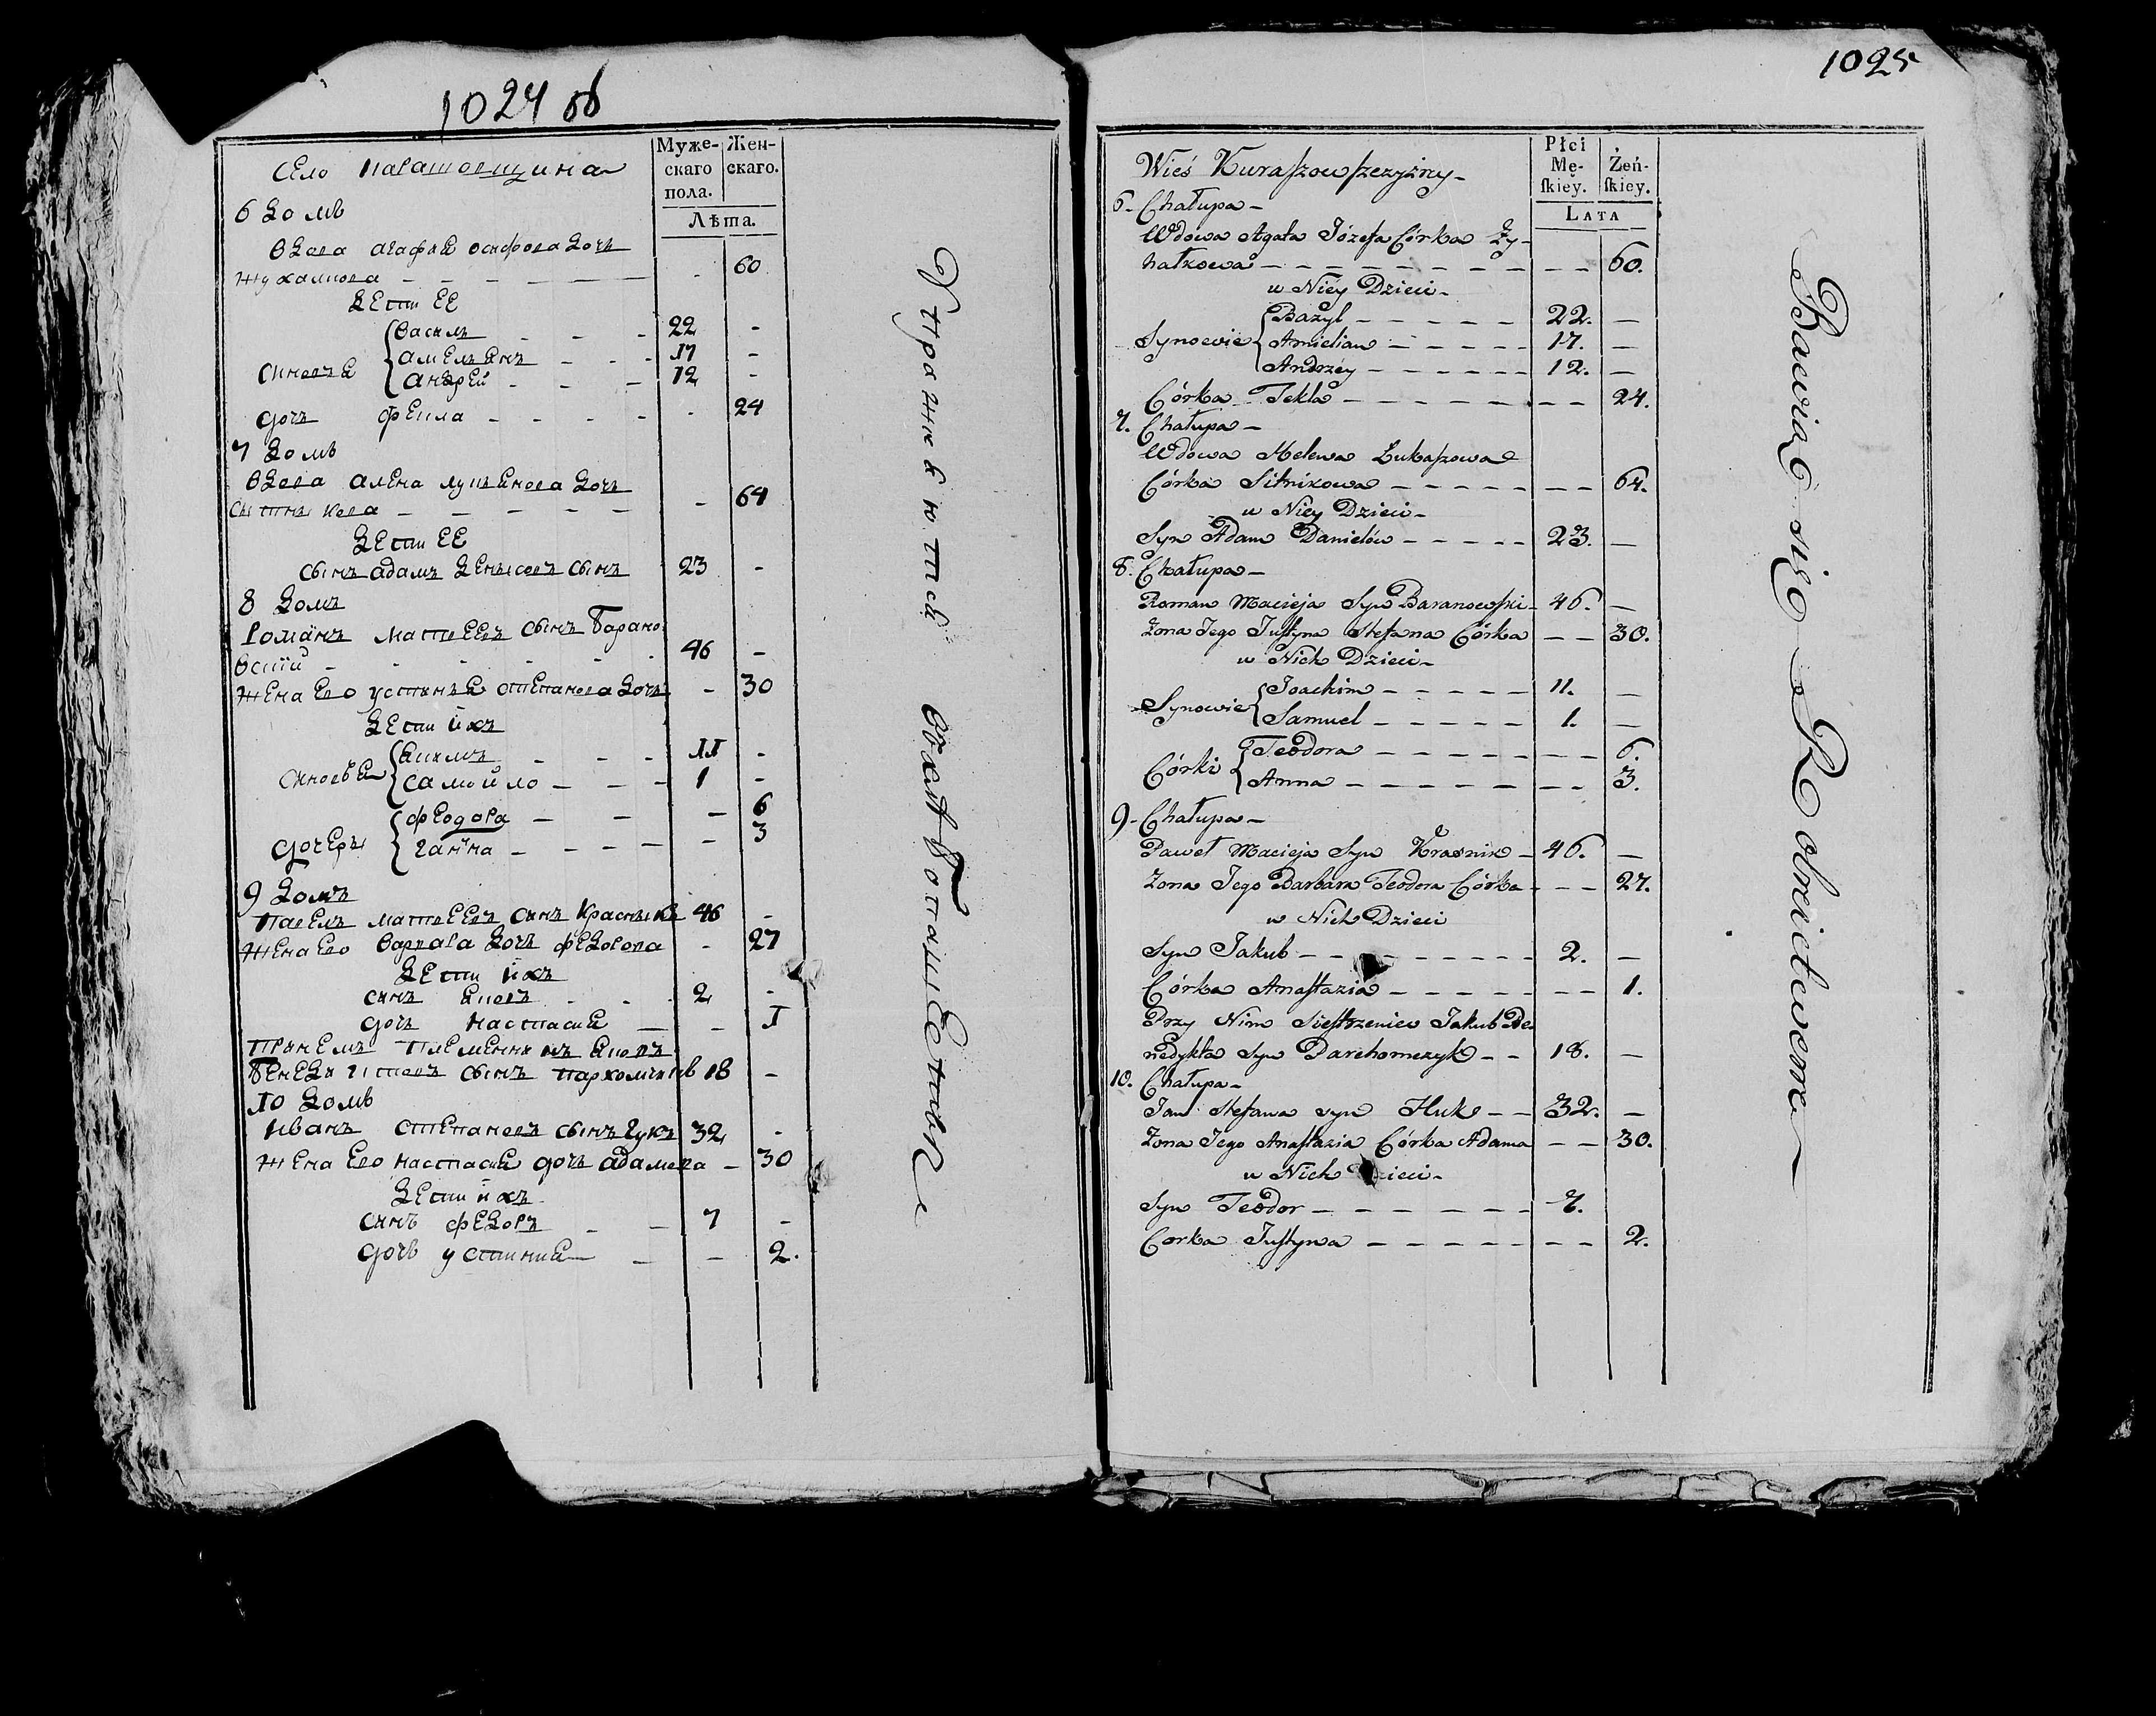 1024 об
Село Карашовщина
Муже-
скаго
пола.
Жен-
скаго.
Лѣта.
6 домъ
вдова агафия осифова дочъ
60
дети ее
василъ - - - 22 -
синовъя амелъянъ - - - 17 -
андрей - - - 12 -
дочъ фекла - - - - 24
7 домъ
вдова алена лукъянова дочъ
- 64
дети ее
сынъ адамъ сынъ 23 -
8 домъ
романъ матвеевъ сынъ барано
вский - - - - 46 -
жена его устинъя степанова дочъ - 30
дети ихъ
акимъ - - - 11 -
синовъя самойло - - - 1 -
феодора - - - 6
дочеры ганна - - - - 3
9 домъ
павелъ матвеевъ синъ красникъ 46 -
жена его варвара дочъ федорова - 27
дети ихъ
синъ яковъ - - 2 -
дочъ настасия - - 1
племенникъ яковъ
сынъ 18 -
10 домъ
иванъ степановъ сынъ гукъ 32 -
жена его настасия дочъ адамова - 30
дети ихъ
синъ федоръ - - 7 -
дочъ устиния - - 2.
Упражняются хлебопашествомъ
1025
Wieś Kuraszowszczyzny
Płci
Mę-
skiey.
Żeń-
skiey.
LATA
6. Chałupa
Wdowa Agata Józefa Córka Ży-
hałkowa - - - - - - 60.
u Niéy Dzieci
Bazyl - - - - - 22. -
Synowie Amielian - - - - - 17. -
Andrzéy - - - - - - 12. -
Córka Tekla - - - - - - - - 24.
7. Chałupa
Wdowa Helena Łukaszowa
Córka Sitnikowa - - - - - - - 64.
u Niey Dzieci
Syn Adam Danielów - - - - - 23. -
8. Chałupa
Roman Macieja Syn Baranowski - 46. -
Żona Jego Justyna Stefana Córka - - 30.
u Nich Dzieci
Joachim - - - - - 11. -
Synowie Samuel - - - - - 1. -
Teodora - - - - - - - 6.
Córki Anna - - - - - - - - 3.
9. Chałupa
Paweł Macieja Syn Krasnik - 46. -
Żona Jego Barbara Teodora Córka - - - 27.
u Nich Dzieci
Syn Jakub - - - - - - - - 2. -
Córka Anastazia - - - - - - - 1.
Przy Nim Siestrzeniec Jakub Be-
nedykta Syn Parchomczyk - - 18. -
10. Chałupa
Jan Stefana syn Huk - - 32. -
Żona Jego Anastazia Córka Adama - - 30.
u Nich Dzieci
Syn Teodor - - - - - - 7.
Corka Justyna - - - - - - - - 2.
Bawią się Rolnictwem